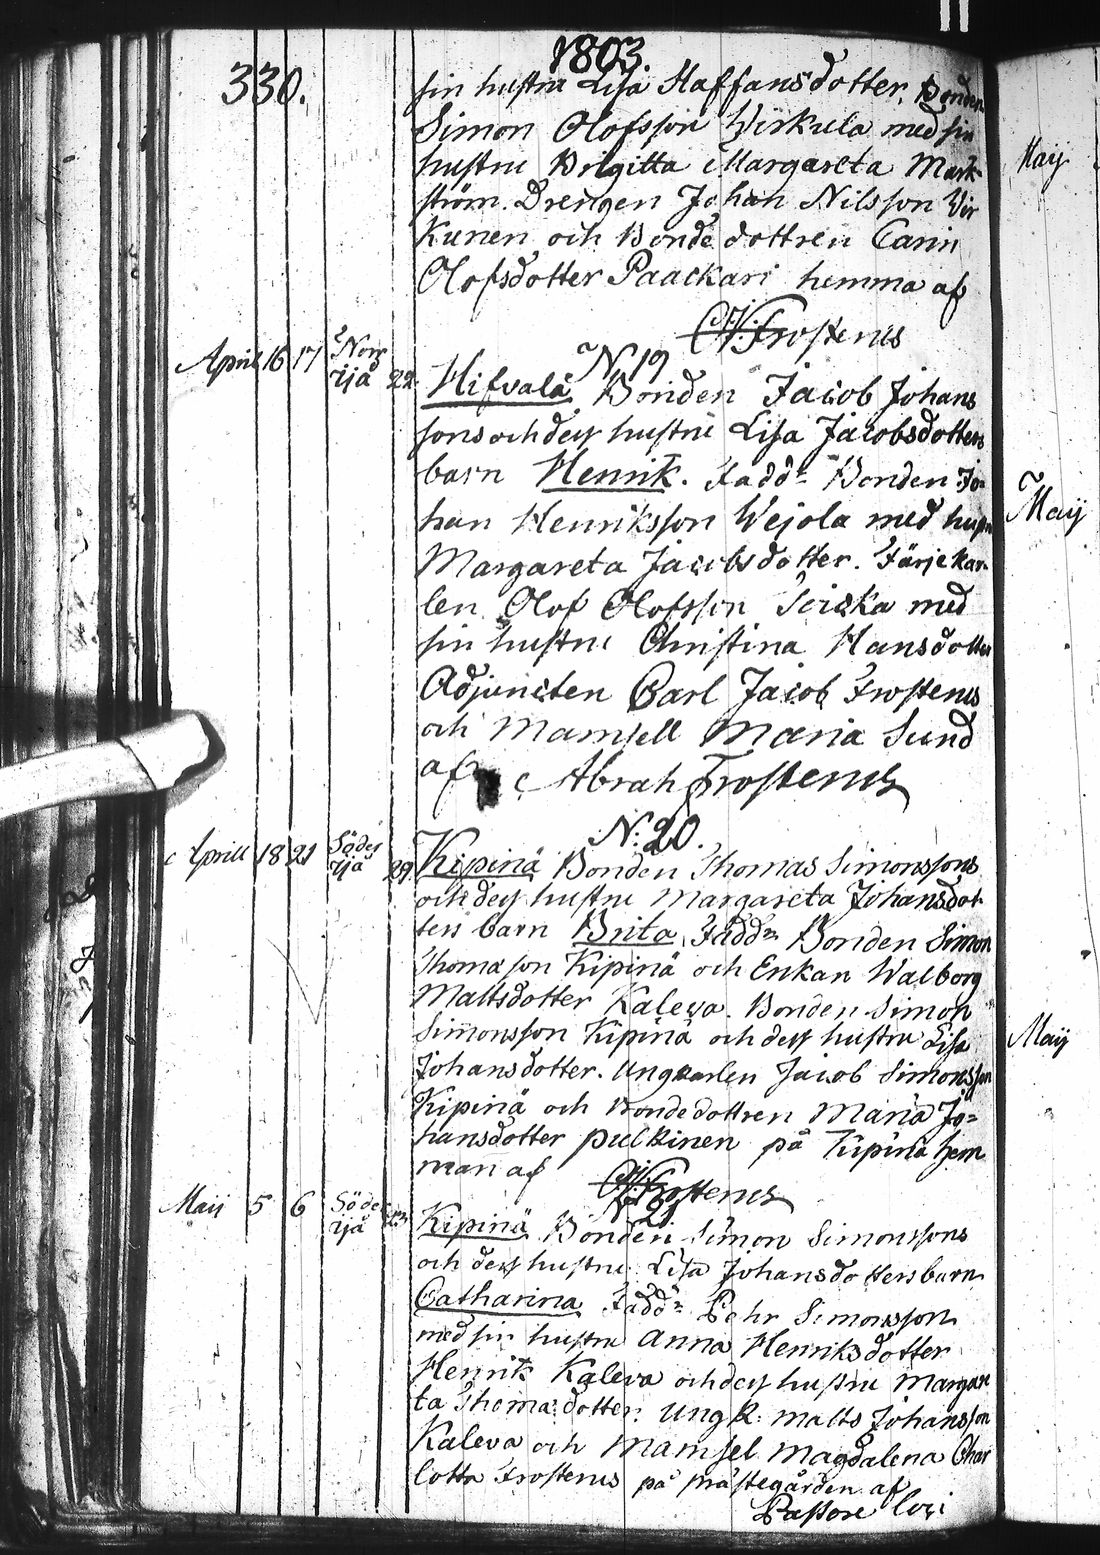 1803.
330.
sin hustru Lisa Staffansdotter, Bonden
Simon Olofsson Wirkula med sin
hustru Brigitta Margareta Mark-
ström. Drengen Johan Nilsson Wir
kunen och Bonde dottren Carin
Olofsdotter Paackari hemma af
Frosterus
N 19
April 16 17 Norr sjä 22.
Hifvala, Bonden Jacob Johans
sons och dess hustru Lisa Jacobsdotters
barn Henrik. Fadd:r Bonden Jo-
han Henriksson Wejola med hustru
Margareta Jacobsdotter. Färjekar-
len Olof Olofsson med
sin hustru Christina Hansdotter
Adjuncten Carl Jacob Frosterus
och Mamsell Maria Sund
af Abrah Frosterus
N: 20.
Aprill 18 21 Söder sjä 29
Kipinä Bonden Thomas Simonssons
och dess hustru Margareta Johansdot-
ters barn Brita, Fadd:r Bonden Simon
Thomasson Kipinä och Enkan Walborg
Mattsdotter Kaleva. Bonden Simon
Simonsson Kipinä och dess hustru Lisa
Johansdotter. Ungkarlen Jacob Simonsson
Kipinä och Bondedottren Maria Jo=
hansdotter Pulkinen på Kipinä hem
man af Frosterus
N 21
Maij 5 6 Söder sjä
Kipinä Bonden Simon Simonssons
och dess hustru Lisa Johansdotters barn
Catharina Fadd:r Pehr Simonsson
med sin hustru Anna Henriksdotter
Henrik Kaleva och dess hustru Marga
ta Thomædotter. Ungk: Matts Johansson
Kaleva och Mamsel Magdalena Char
lotta Frosterus på Prästegården af
Pastore loci
Maij
Maij
Maij